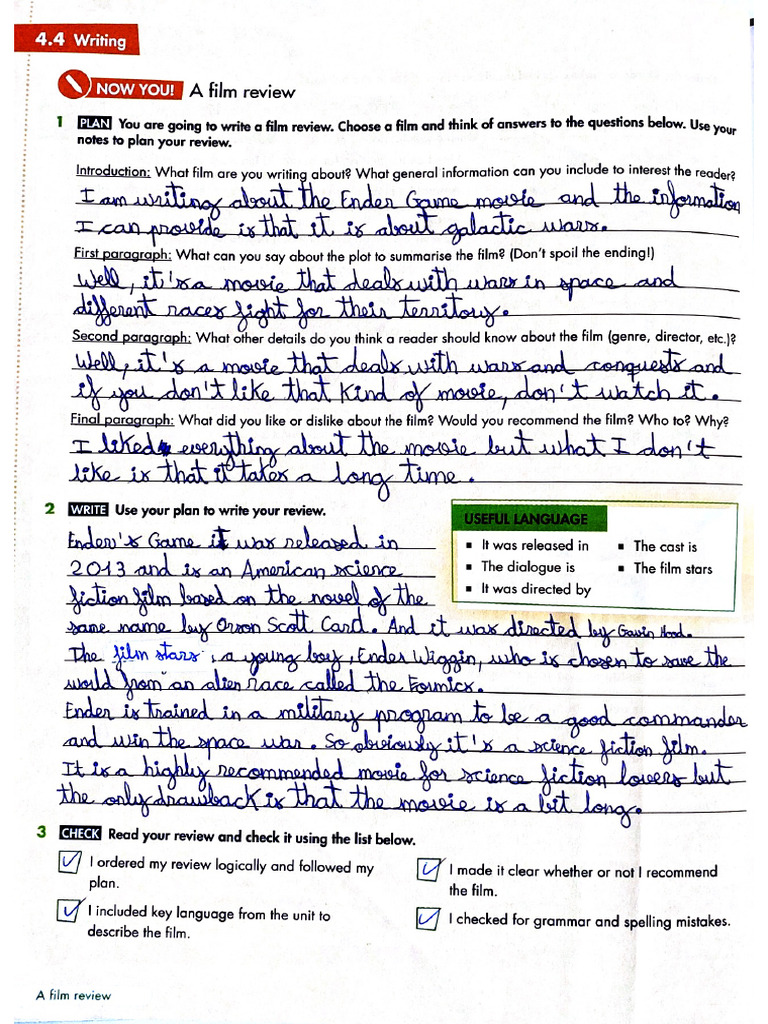 4.4 Writing
NOW YOU! A film review
1 PLAN You are going to write a film review. Choose a film and think of answers to the questions below. Use your
notes to plan your review.
Introduction: What film are you writing about? What general information can you include to interest the reader?
I am writing about the Ender Game movie and the information
I can provide is that it is about galactic wars.
First paragraph: What can you say about the plot to summarise the film? (Don't spoil the ending!)
Well, it's a movie that deals with wars in space and
different races fight for their territory.
Second paragraph: What other details do you think a reader should know about the film (genre, director, etc.)?
Well, it's a movie that deals with wars and conquests and
if you don't like that kind of movie, don't watch it.
Final paragraph: What did you like or dislike about the film? Would you recommend the film? Who to? Why?
I liked everything about the movie but what I don't
like is that it takes a long time.
2 WRITE Use your plan to write your review.
USEFUL LANGUAGE
▪ It was released in
▪ The cast is
▪ The dialogue is
▪ The film stars
▪ It was directed by
Ender's Game it was released in
2013 and is an American science
fiction film based on the novel of the
same name by Orson Scott Card. And it was directed by Gavin Hood.
The film stars, a young boy, Ender Wiggin, who is chosen to save the
world from an alien race called the Formics.
Ender is trained in a military program to be a good commander
and win the space war. So obviously it's a science fiction film.
It is a highly recommended movie for science fiction lovers but
the only drawback is that the movie is a bit long.
3 CHECK Read your review and check it using the list below.
I ordered my review logically and followed my
plan.
I included key language from the unit to
describe the film.
I made it clear whether or not I recommend
the film.
I checked for grammar and spelling mistakes.
A film review